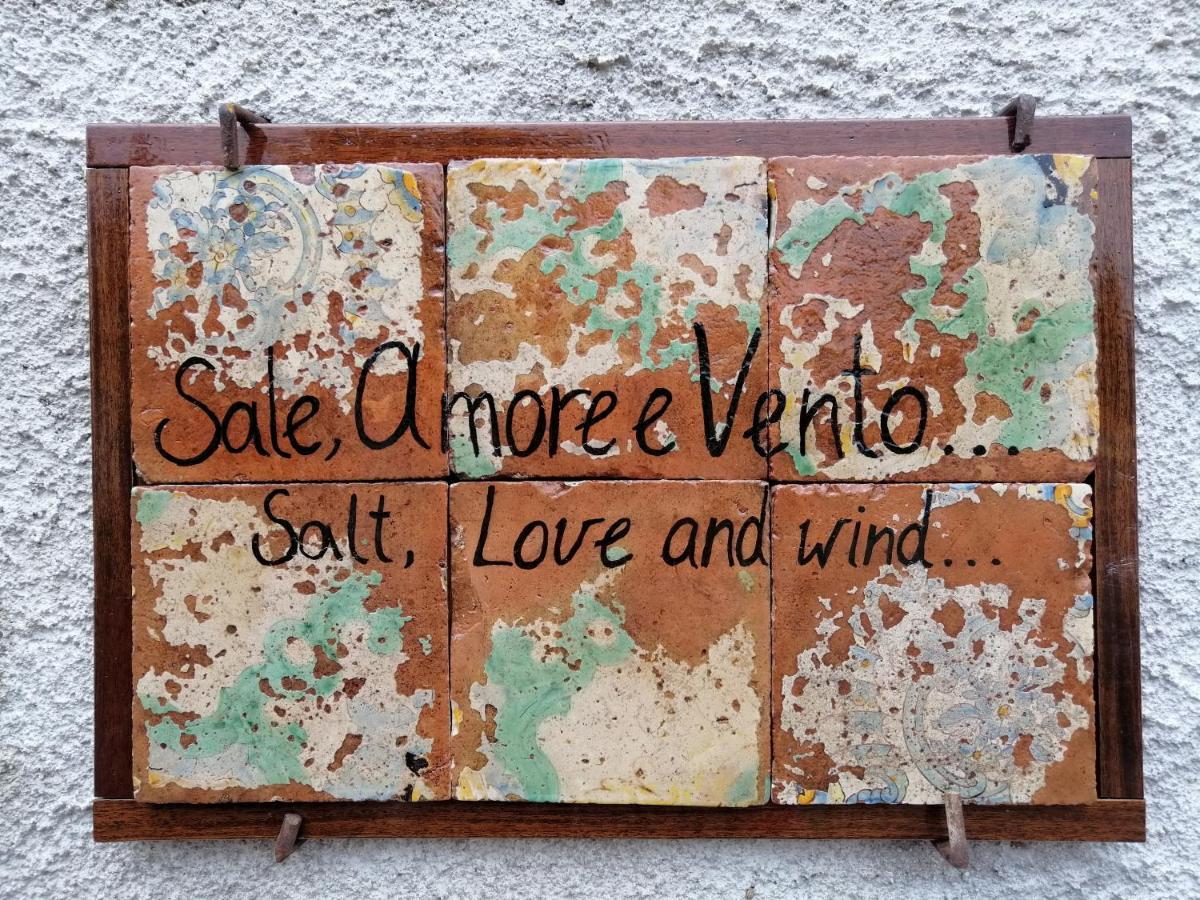 Sale, Amore e Vento...
Salt, Love and wind...